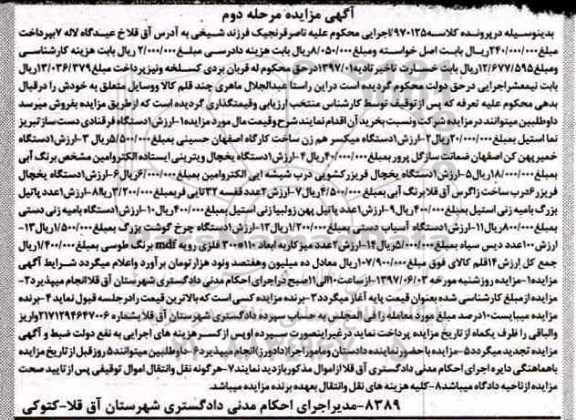 آگهی مزایده مرحله دوم
بدینوسیله در پرونده کلاسه ۹۷۰۱۲۵/اجرایی محکوم علیه ناصر قرنجیک فرزند شیخی به آدرس آق قلا خ عیدگاه لاله ۷ بپرداخت
مبلغ ۲۴۰/۰۰۰/۰۰۰ ریال بابت اصل خواسته ومبلغ ۸/۰۵۰/۰۰۰ ریال بابت هزینه دادرسی مبلغ ۲/۰۰۰/۰۰۰ ریال بابت هزینه کارشناسی
ومبلغ ۱۲/۶۷۷/۵۹۵ ریال بابت خسارت تاخیر تادیه ۱۳۹۷/۰۱ درحق محکوم له قربان بردی کسلخه ونیز پرداخت مبلغ ۱۳/۰۳۶/۳۷۹ ریال
بابت نیمعشر اجرایی در حق دولت محکوم گردیده است در این راستا عبدالجلال ماهری چند قلم کالا ووسایل متعلق به خودش را درقبال
بدهی محکوم علیه تعرفه که پس از توقیف توسط کارشناس منتخب ارزیابی وقیمتگذاری گردیده است که از طریق مزایده بفروش میرسد
داوطلبین میتوانند در مزایده شرکت ونسبت بخرید آن اقدام نمایند شرح وقیمت مال مورد مزایده ۱-ارزش ۱ دستگاه فر قنادی دست ساز تبریز
نما استیل بمبلغ ۲۰/۰۰۰/۰۰۰ ریال ۲-ارزش ۱ دستگاه میکسر هم زن ساخت کارگاه اصفهان حسینی بمبلغ ۵/۵۰۰/۰۰۰ ریال ۳-ارزش ۱ دستگاه
خمیر پهن کن اصفهان ضمانت ساز گل پرور بمبلغ ۴۰/۰۰۰/۰۰۰ ریال ۴-ارزش ۱ دستگاه یخچال ویترینی ایستاده الکتروامین مشخص برنگ آبی
بمبلغ ۱۸/۰۰۰/۰۰۰ ریال ۵-ارزش ۱ دستگاه یخچال فریزر کشویی درب شیشه ایی الکتروامین بمبلغ ۶/۰۰۰/۰۰۰ ریال ۶-ارزش ۱ دستگاه یخچال
فریزر ۶ درب ساخت زاگرس آق قلا برنگ آبی بمبلغ ۴/۵۰۰/۰۰۰ ریال ۷-ارزش ۲ عدد قفسه ۳۲ تایی فر بمبلغ ۳/۲۰۰/۰۰۰ ریال ۸-ارزش ۱ عدد پاتیل
بزرگ بامیه زنی استیل بمبلغ ۴۰۰/۰۰۰ ریال ۹-ارزش ۱ عدد پاتیل پهن زولبیا زنی استیل بمبلغ ۴۰۰/۰۰۰ ریال ۱۰-ارزش ۱ دستگاه بامیه زنی دستی
بمبلغ ۸۰۰/۰۰۰ ریال ۱۱-ارزش ۱ دستگاه آسیاب دستی بمبلغ ۱/۲۰۰/۰۰۰ ریال ۱۲-ارزش ۱ دستگاه چرخ گوشت بزرگ بمبلغ ۱/۵۰۰/۰۰۰ ریال ۱۳-
ارزش ۱۰۰ عدد دیس سیاه بمبلغ ۵/۰۰۰/۰۰۰ ریال ۱۴-ارزش ۲ عدد میز کاربه ابعاد ۱۱۰*۳۰۰ فلزی رویه mdf برنگ طوسی بمبلغ ۱/۴۰۰/۰۰۰ ریال
جمع کل ارزش ۱۴ قلم کالای فوق مبلغ ۱۰۷/۹۰۰/۰۰۰ ریال معادل ده میلیون وهفتصد ونود هزار تومان برآورد واعلام میگردد شرایط آگهی
مزایده ۱-مزایده روز شنبه مورخه ۱۳۹۷/۰۶/۰۳ از ساعت ۱۰ الی ۱۱ صبح در اجرای احکام مدنی دادگستری شهرستان آق قلا انجام میپذیرد ۲-
مزایده از مبلغ کارشناسی شده بعنوان قیمت پایه آغاز میگردد ۳-برنده مزایده کسی است که بالاترین قیمت را در جلسه قبول نماید ۴-برنده
مزایده میبایست ۱۰ درصد مبلغ مورد معامله را فی المجلس به حساب سپرده دادگستری شهرستان آق قلا بشماره ۲۱۷۱۲۹۴۶۴۷۰۰۶ واریز
والباقی را ظرف یکماه از تاریخ مزایده پرداخت نماید در غیر اینصورت سپرده اوپس از کسر هزینه های اجرایی به نفع دولت ضبط و آگهی
مزایده تجدید میگردد ۵-مزایده با حضور نماینده دادستان ومامور اجرا(دادورز) انجام میپذیرد ۶-داوطلبین میتوانند ۵ روز قبل از تاریخ مزایده
باهماهنگی دایره اجرای احکام مدنی دادگستری آق قلا از اموال مذکور بازدید نمایند ۷-هرگونه نقل وانتقال اموال توقیفی پس از تایید صحت
مزایده از ناحیه دادگاه میباشد ۸-کلیه هزینه های نقل وانتقال بعهده برنده مزایده میباشد.
۸۳۸۹-مدیر اجرای احکام مدنی دادگستری شهرستان آق قلا-کتوکی